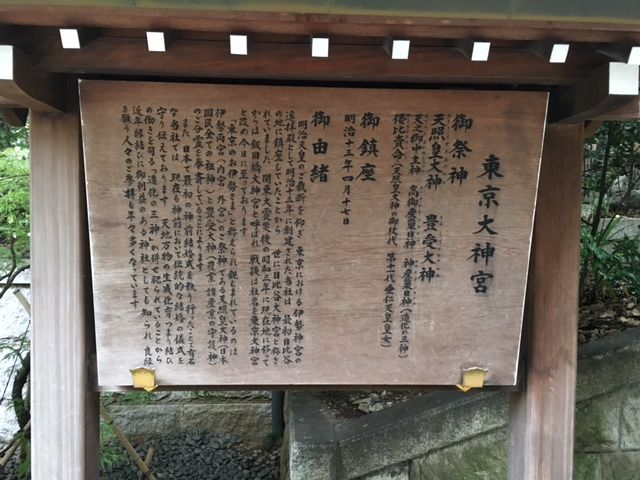 東京大神宮
御祭神
天照皇大神 豊受大神
天之御中主神 高御産巣日神 神産巣日神(造化の三神)
倭比賣命(天照皇大神の御杖代 第十一代垂仁天皇皇女)
御鎮座
明治十三年四月十七日
御由緒
明治天皇の御裁断を仰ぎ 東京における伊勢神宮の
遥拝殿として明治十三年に創建された当社は 最初日比谷
の地に鎮座していたことから 世に日比谷大神宮と称さ
れていました 関東大震災後の昭和三年に現在地に移って
からは飯田橋大神宮と呼ばれ 戦後は社名を東京大神宮
と改め今日に至っております
「東京のお伊勢さま」と称えられ親しまれているのは
伊勢両宮(内宮・外宮)の御祭神である天照皇大神(日本
国民全ての祖神)と豊受大神(農業・諸産業の守護神)
の御分霊を奉斎していることによります
また 日本で最初の神前結婚式を執り行ったことで有名
な当社では 現在も神前において伝統的な結婚の儀式を
守り伝えております 天地万物の生成化育つまり結び
の働きを司る「造化の三神」が併せ祀られていることから
近年 縁結びに御利益のある神社としても知られ 良縁
を願う人々の参拝も年々多くなっています